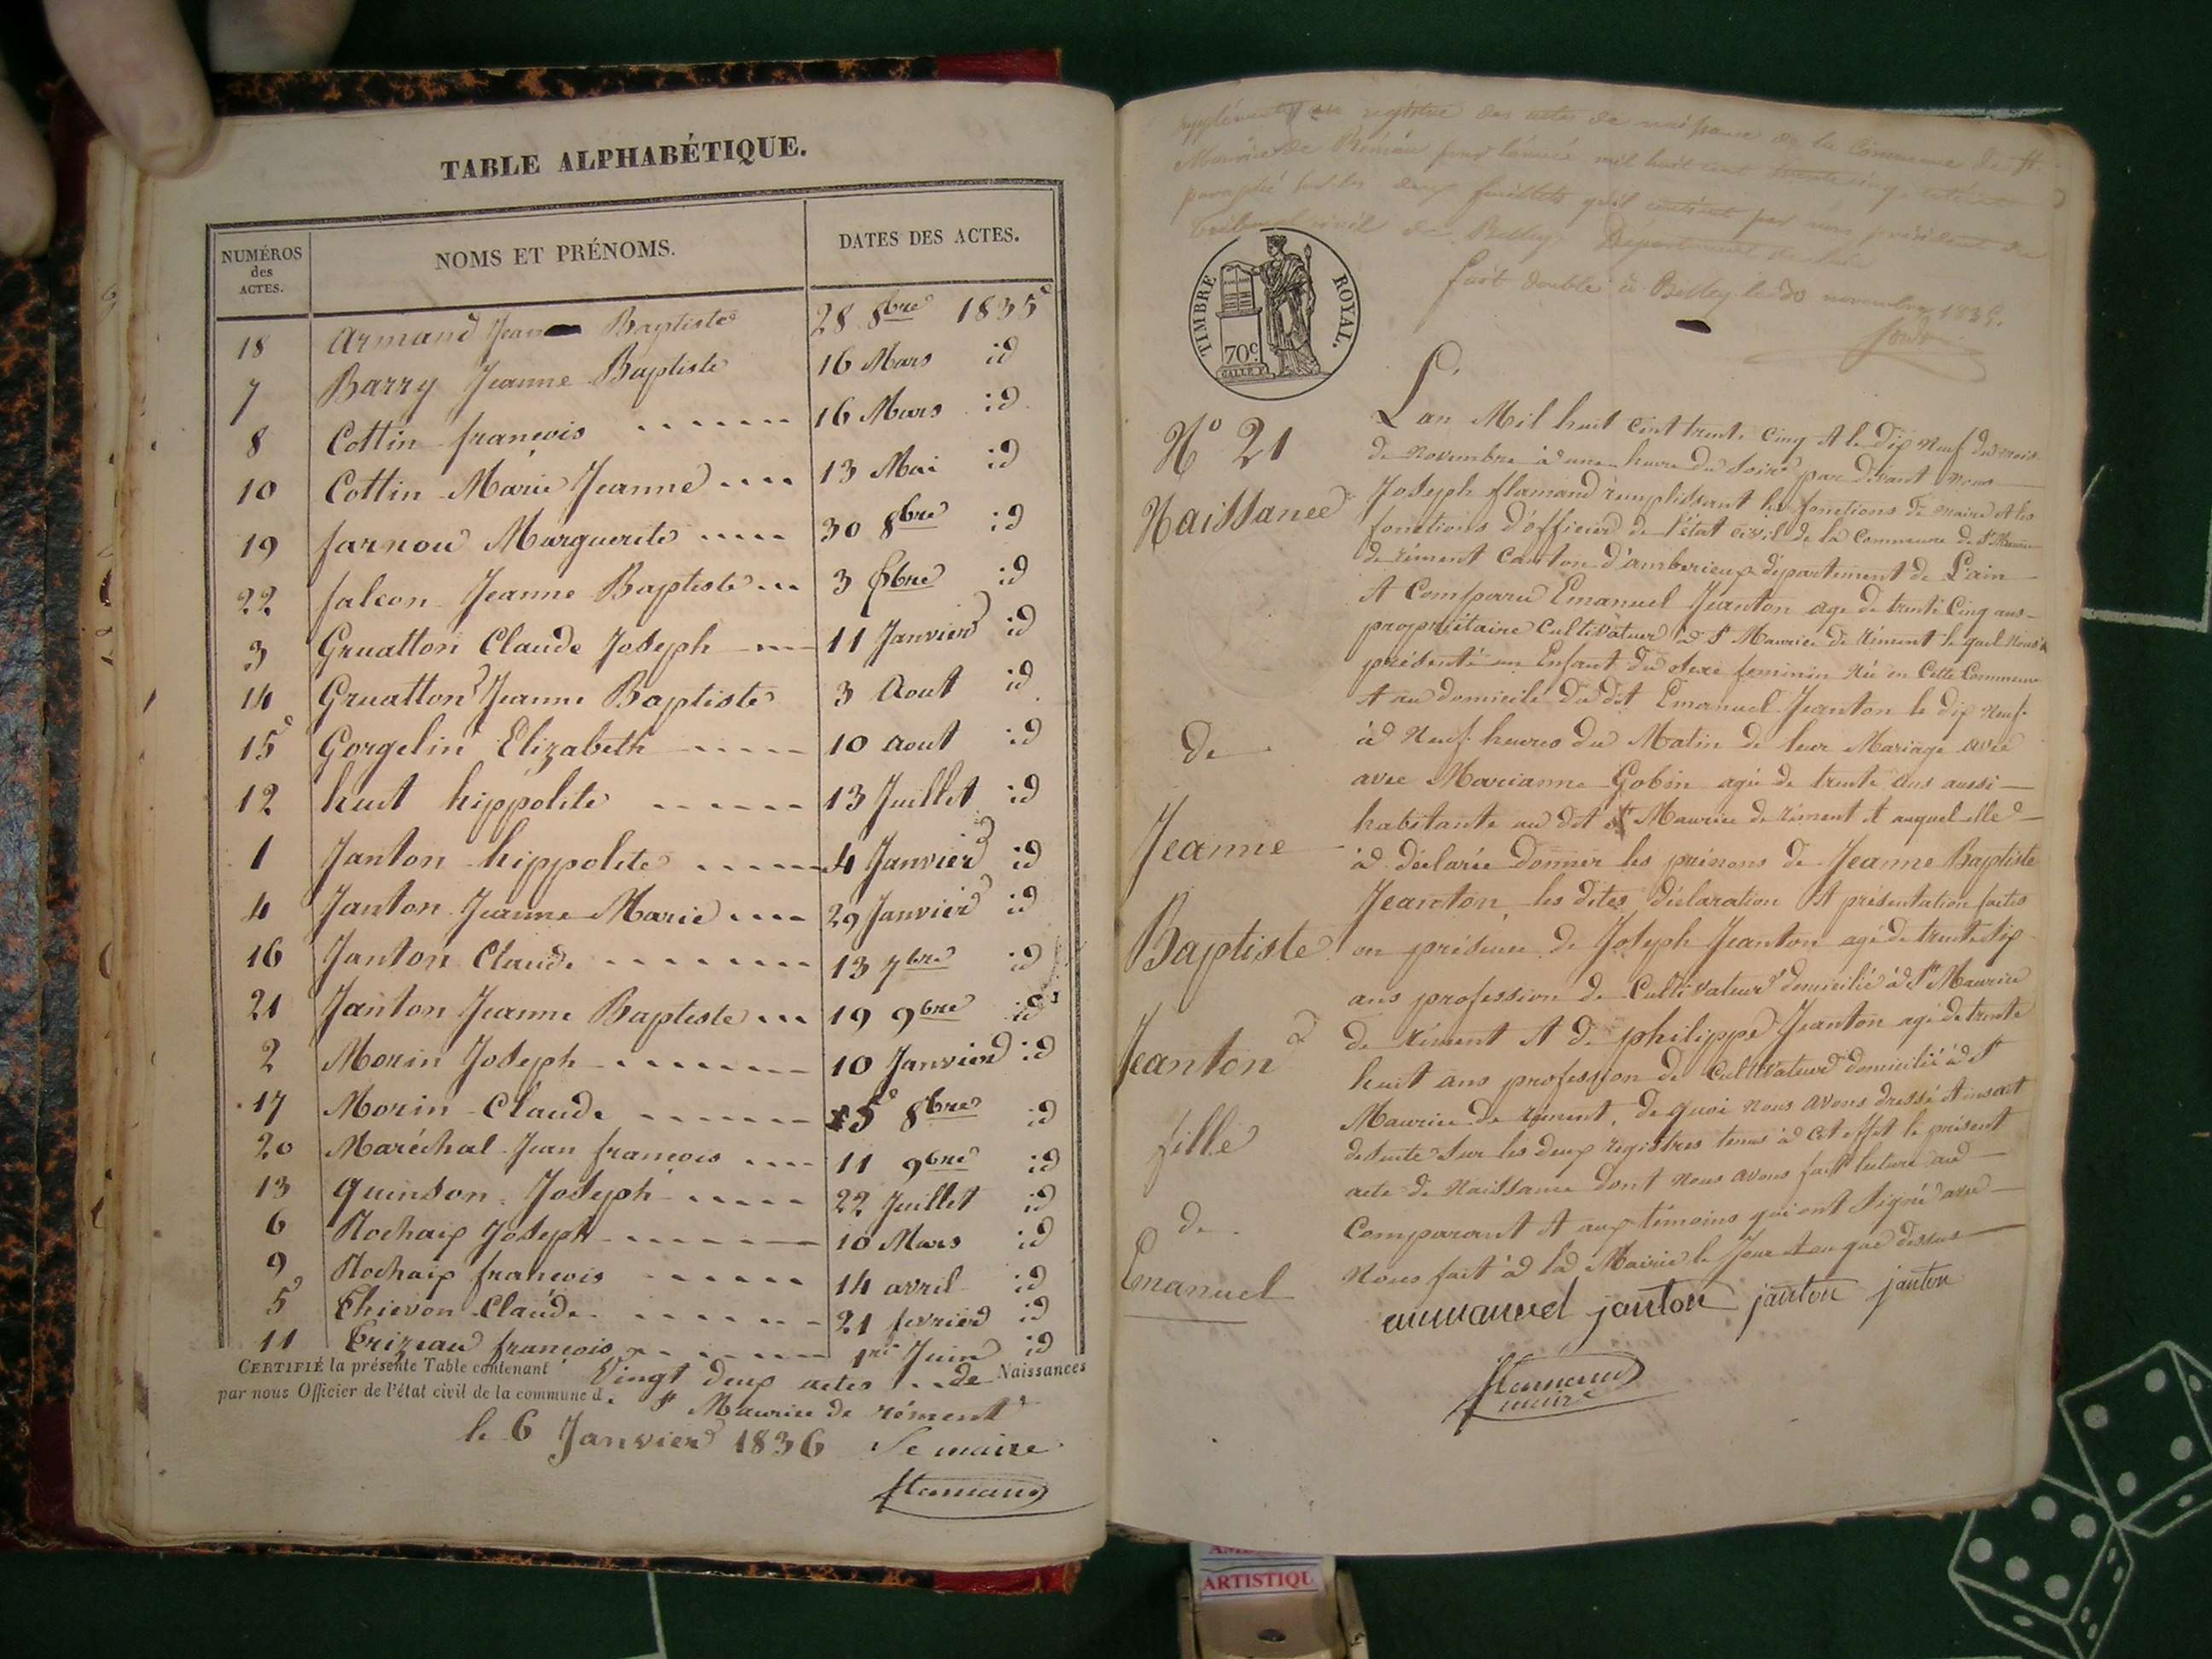 TABLE ALPHABÉTIQUE.
NUMÉROS des ACTES. NOMS ET PRÉNOMS. DATES DES ACTES.
18 Armand Jean Baptiste 28 8bre 1835
7 Barry Jeanne Baptiste 16 Mars id
8 Cottin françois 16 Mars id
10 Cottin Marie Jeanne 13 Mai id
19 farnou Marguerite 30 8bre id
22 falcon Jeanne Baptiste 3 id
3 Gruatton Claude Joseph 11 Janvier id
14 Gruatton Jeanne Baptiste 3 Aout id
15 Gorgelin Elizabeth 10 aout id
12 huit hippolite 13 Juillet id
1 Janton hippolite 4 Janvier id
4 Janton Jeanne Marie 29 Janvier id
16 Janton Claude 13 7bre id
21 Janton Jeanne Baptiste 19 9bre id
2 Morin Joseph 10 Janvier id
17 Morin Claude 5 8bre id
20 Maréchal Jean françois 11 9bre id
13 quinson Joseph 22 Juillet id
6 Rochaix Joseph 10 Mars id
9 Rochaix françois 14 avril id
5 Thievon Claude 21 fevrier id
11 françois 1re Juin id
CERTIFIÉ la présente Table contenant Vingt deux actes de Naissances
par nous Officier de l'état civil de la commune d. St Maurice de rément
le 6 Janvier 1836 Le maire
flamand
registre des actes de naissance de la Commune de St
Maurice de Rémens pour l'année mil huit cent trente cinq
paraphé sur les deux feuillets qu'il contient par nous président du
tribunal civil de Belley Département de l'ain
fait double à Belley le 30 novembre 1835.
TIMBRE ROYAL.
70c
No 21
Naissance
de
Jeanne
Baptiste
Jeanton
fille
de
Emanuel
L'an Mil huit cent trente cinq et le dix neuf du mois
de Novembre à une heure du Soir par devant nous
Joseph flamand remplissant les fonctions de maire et les
fonctions d'officier de l'état civil de la Commune de St Maurice
de rément Canton d'amberieux département de L'ain
et Comparu Emanuel Jeanton age de trente Cinq ans
propriétaire Cultivateur à St Maurice de rément le quel nous a
présenté un Enfant du Sexe feminin Née en Cette Commune
et au domicile du dit Emanuel Jeanton le dix Neuf
à Neuf heures du Matin de leur Mariage avec
avec Marianne Gobin agée de trente ans aussi
habitante au dit St Maurice de rément et auquel elle
à déclarée donner les prénoms de Jeanne Baptiste
Jeanton, les dites déclaration et présentation faites
en présence de Joseph Jeanton agé de trente Six
ans profession de Cultivateur domicilié à St Maurice
de rément et de philippe Jeanton agé de trente
huit ans profession de Cultivateur domicilié à St
Maurice de rément, de quoi nous avons dressé et insait
de Suite Sur les deux registres tenus à cet effet le présent
acte de Naissance dont nous avons fait lecture au
Comparant et aux témoins qui ont Signé avec
Nous fait à la Mairie le Jour et an que dessus
emmanuel janton janton janton
flamand
maire
ARTISTIQU